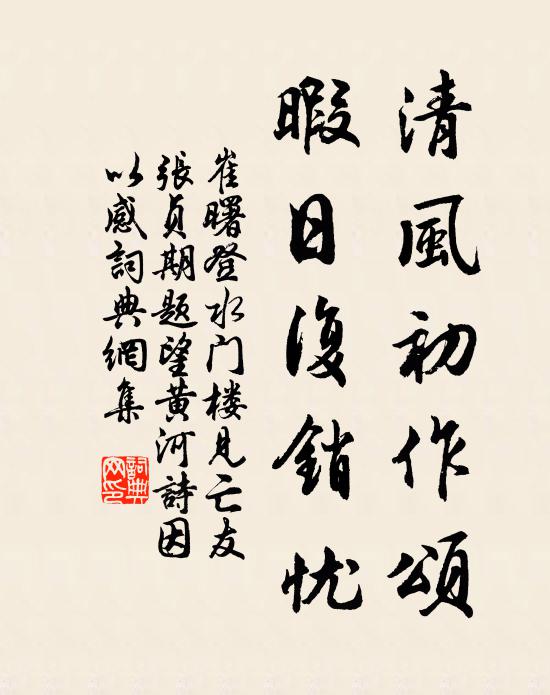 清風初作頌
暇日復銷忧
崔曙登水门楼见亡友
張貞期题望黄河詩因
以感詞典網集
詞典网印